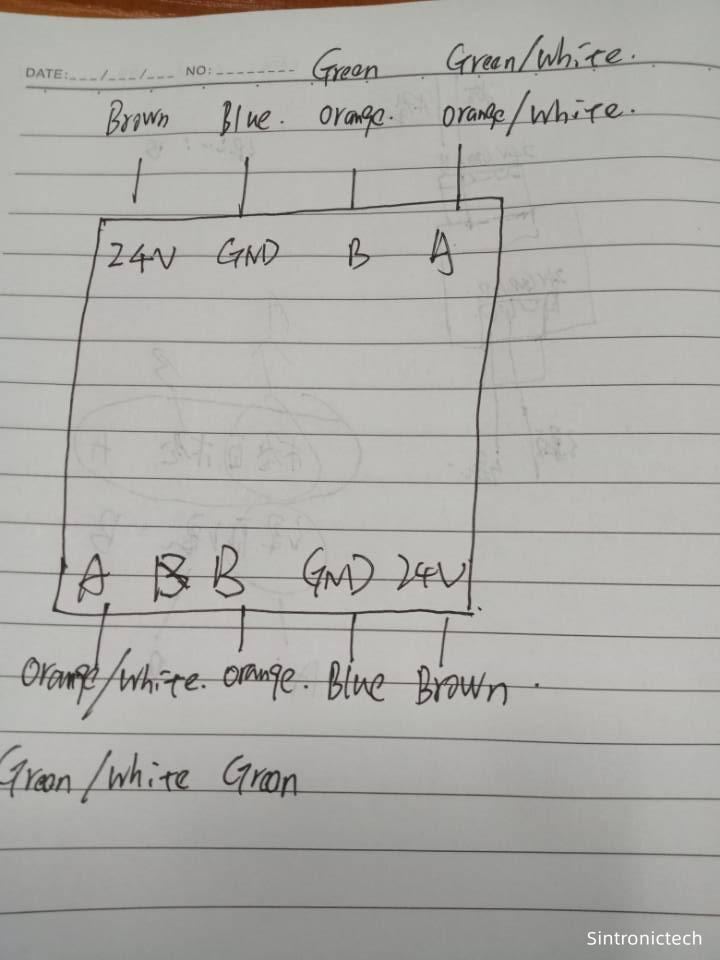 DATE:___/___/___ NO:________
Green Green/White.
Brown Blue. Orange. Orange/White.
24V GND B A
A B GND 24V
Orange/White. Orange. Blue Brown.
Green/White Green
Sintronictech